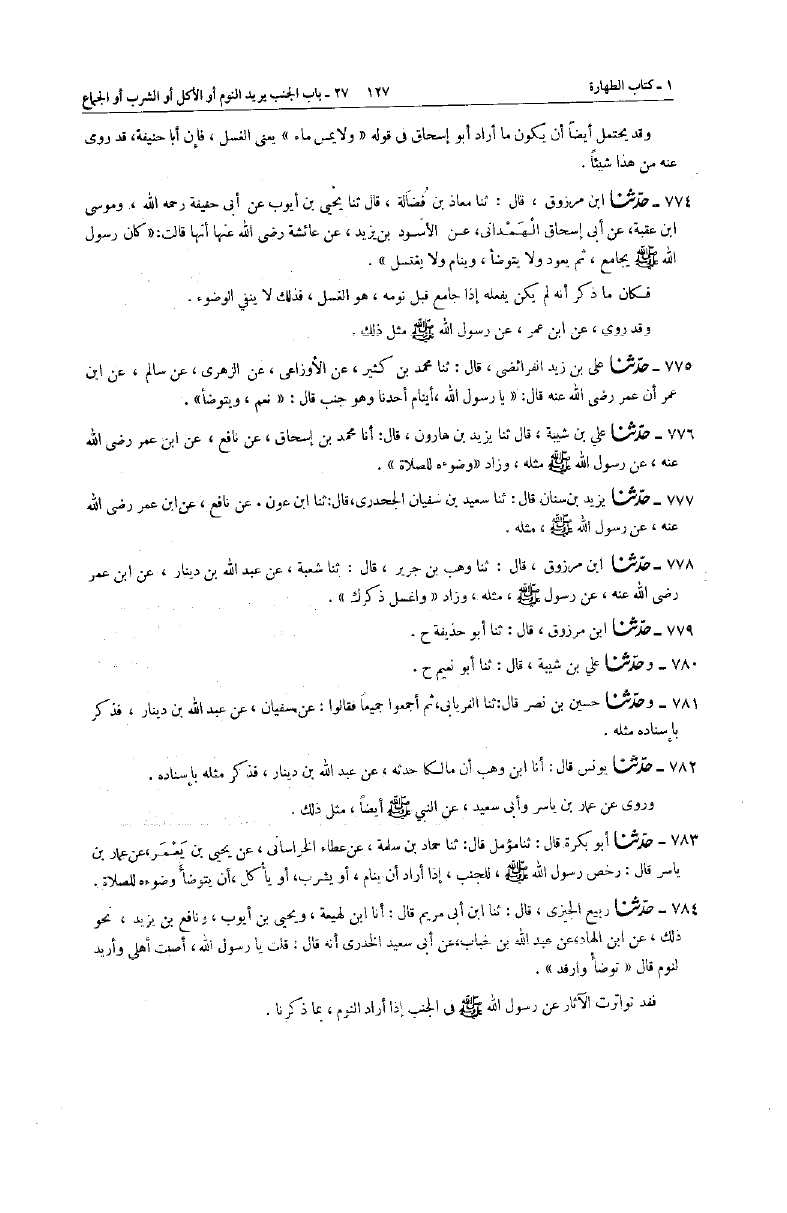 ١ ـ كتاب الطهارة ١٢٧ ٢٧ ـ باب الجنب يريد النوم أو الأكل أو الشرب أو الجماع
وقد يحتمل أيضاً أن يكون ما أراد أبو إسحاق فى قوله « ولايمس ماء » يعنى الغسل ، فإن أبا حنيفة، قد روى
عنه من هذا شيئاً .
٧٧٤ ـ حدّثنا ابن مرزوق ، قال : ثنا معاذ بن فُضَالة ، قال ثنا يحْيى بن أيوب عن أبى حفيفة رحمه الله ، وموسى
ابن عقبة، عن أبى إسحاق الْهَمْدانى، عـن الأسود بن‌يزيد ، عن عائشة رضى الله عنها أنها قالت:« كان رسول
الله ﷺ يجامع ، ثم يعود ولا يتوضأ ، وينام ولا يغتسل » .
فـكان ما ذكر أنه لم يكن يفعله إذا جامع قبل نومه ، هو الغسل ، فذلك لا ينفي الوضوء .
وقد روي ، عن ابن عمر ، عن رسول الله ﷺ مثل ذلك .
٧٧٥ ـ حدّثنا على بن زيد الفرائضى ، قال : ثنا محمد بن كثير ، عن الأوزاعى ، عن الزهرى ، عن سالم ، عن ابن
عمر أن عمر رضى الله عنه قال: « يا رسول الله ،أينام أحدنا وهو جنب قال : « نعم ، ويتوضأ» .
٧٧٦ ـ حدّثنا علي بن شيبة ، قال ثنا يزيد بن هارون ، قال: أنا محمد بن إسحاق ، عن نافع ، عن ابن عمر رضى الله
عنه ، عن رسول الله ﷺ مثله ، وزاد «وضوءه للصلاة » .
٧٧٧ ـ حدّثنا يزيد بن‌سنان قال: ثنا سعيد بن سفيان الجحدرى،قال:ثنا ابن عون ٠ عن نافع ، عن‌ابن عمر رضى الله
عنه ، عن رسول الله ﷺ ، مثله .
٧٧٨ ـ حدّثنا ابن مرزوق ، قال : ثنا وهب بن جرير ، قال : ثنا شعبة ، عن عبد الله بن دينار ، عن ابن عمر
رضى الله عنه ، عن رسول ﷺ ، مثله ، وزاد « واغسل ذكرك » .
٧٧٩ ـ حدّثنا ابن مرزوق ، قال : ثنا أبو حذيفة ح .
٧٨٠ ـ وحدّثنا علي بن شيبة ، قال : ثنا أبو نعيم ح .
٧٨١ ـ وحدّثنا حسين بن نصر قال:ثنا الفريابى،ثم أجمعوا جميعاً فقالوا : عن‌سفيان ، عن عبد الله بن دينار ، فذكر
بإسناده مثله .
٧٨٢ ـ حدّثنا يونس قال : أنا ابن وهب أن مالكا حدثه ، عن عبد الله بن دينار ، فذكر مثله بإسناده .
وروى عن عمار بن ياسر وأبى سعيد ، عن النبي ﷺ أيضاً ، مثل ذلك .
٧٨٣ ـ حدّثنا أبو بكرة قال : ثنامؤمل قال: ثنا حماد بن سلمة ، عن‌عطاء الخراسانى ، عن يحيى بن يَعْمَر،عن‌عمار بن
ياسر قال : رخص رسول الله ﷺ ، للجنب ، إذا أراد أن ينام ، أو يشرب، أو يأكل ،أن يتوضأ وضوءه للصلاة .
٧٨٤ ـ حدّثنا ربيع الجيزى ، قال : ثنا ابن أبى مريم قال : أنا ابن لهيعة ، ويحيى بن أيوب ، ونافع بن يزيد ، نحو
ذلك ، عن ابن الهاد،عن عبد الله بن خباب،عن أبى سعيد الخدرى أنه قال : قلت يا رسول الله، أصبت أهلي وأريد
لنوم قال « توضأ وارقد » .
فقد تواترت الآثار عن رسول الله ﷺ فى الجنب إذا أراد النوم ، بما ذكرنا .